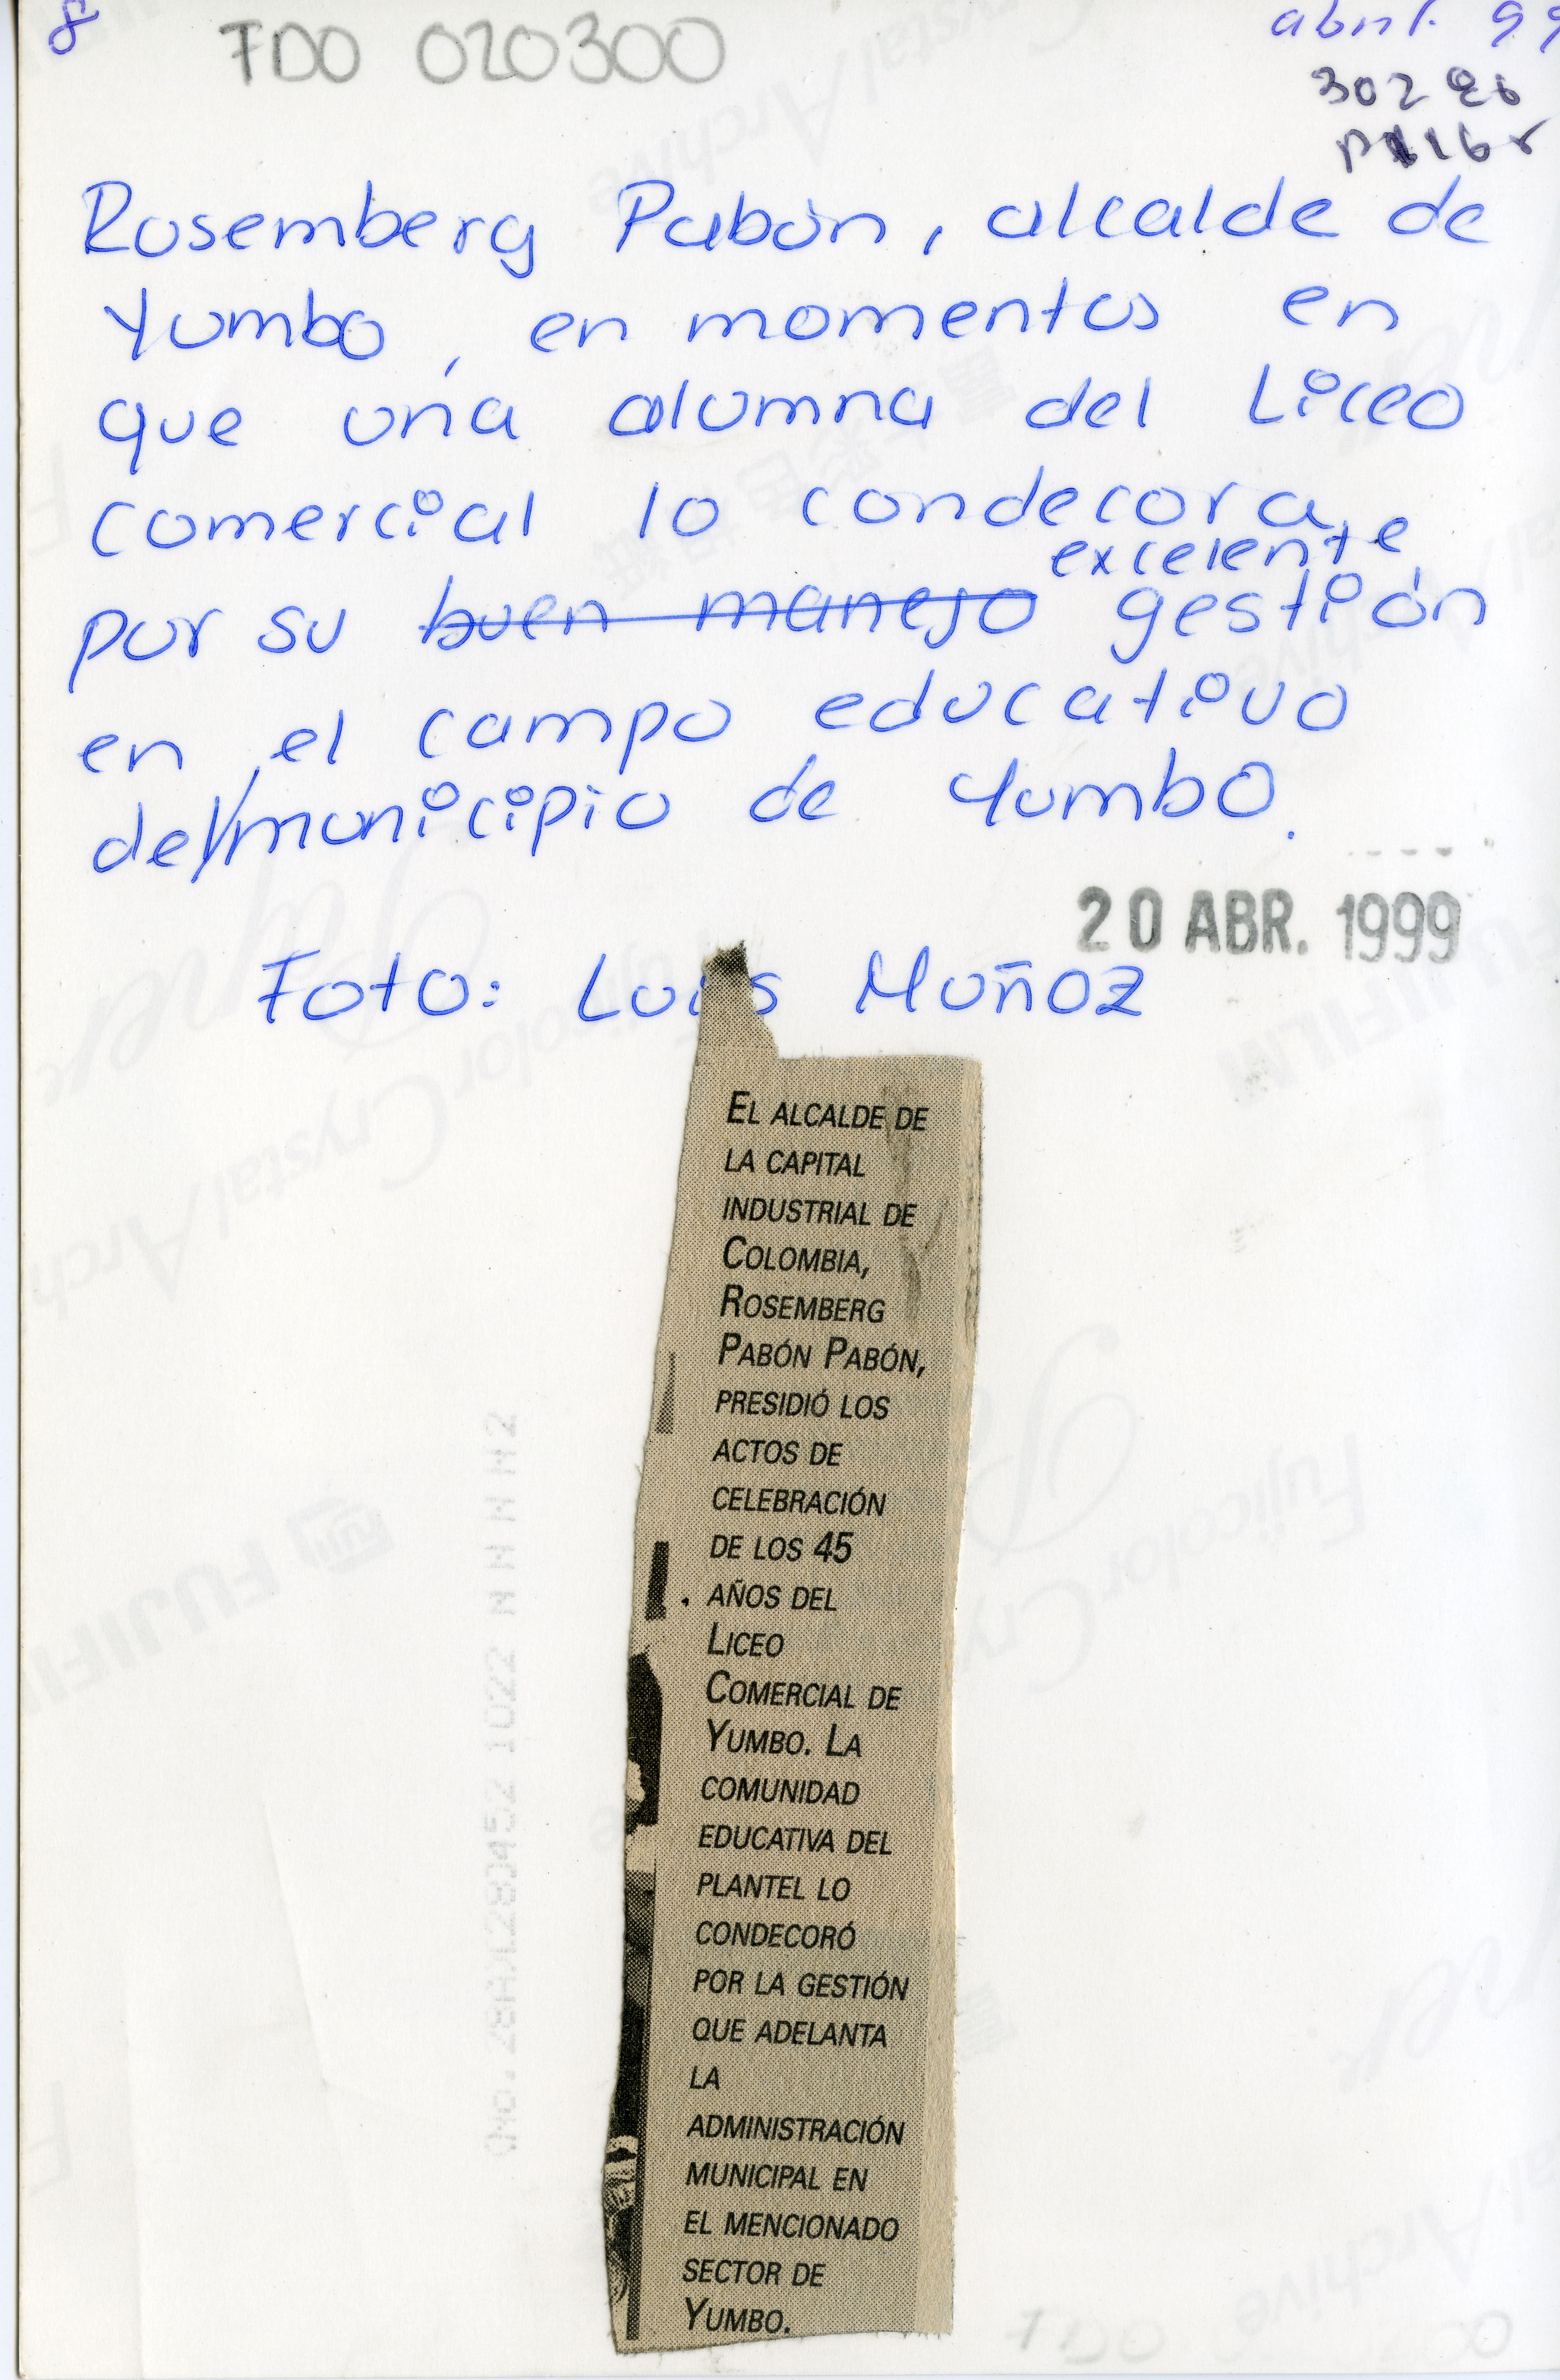 8
FDO 020300
abril. 99
302 26
Rosemberg Pabón, alcalde de
Yumbo, en momentos en
que una alumna del Liceo
comercial lo condecora
excelente
por su buen manejo gestión
en el campo educativo
del/municipio de Yumbo.
20 ABR. 1999
Foto: Luis Muñoz
EL ALCALDE DE
LA CAPITAL
INDUSTRIAL DE
COLOMBIA,
ROSEMBERG
PABÓN PABÓN,
PRESIDIÓ LOS
ACTOS DE
CELEBRACIÓN
DE LOS 45
AÑOS DEL
LICEO
COMERCIAL DE
YUMBO. LA
COMUNIDAD
EDUCATIVA DEL
PLANTEL LO
CONDECORÓ
POR LA GESTIÓN
QUE ADELANTA
LA
ADMINISTRACIÓN
MUNICIPAL EN
EL MENCIONADO
SECTOR DE
YUMBO.
FUJIFILM
Fujicolor Crystal Archive
Paper